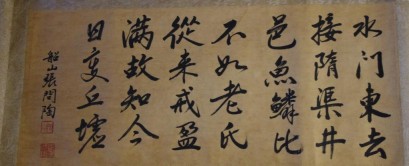 水门東去
接隋渠井
邑魚鱗比
不如老氏
從来戒盈
满故知今
日变丘墟
船山張問陶